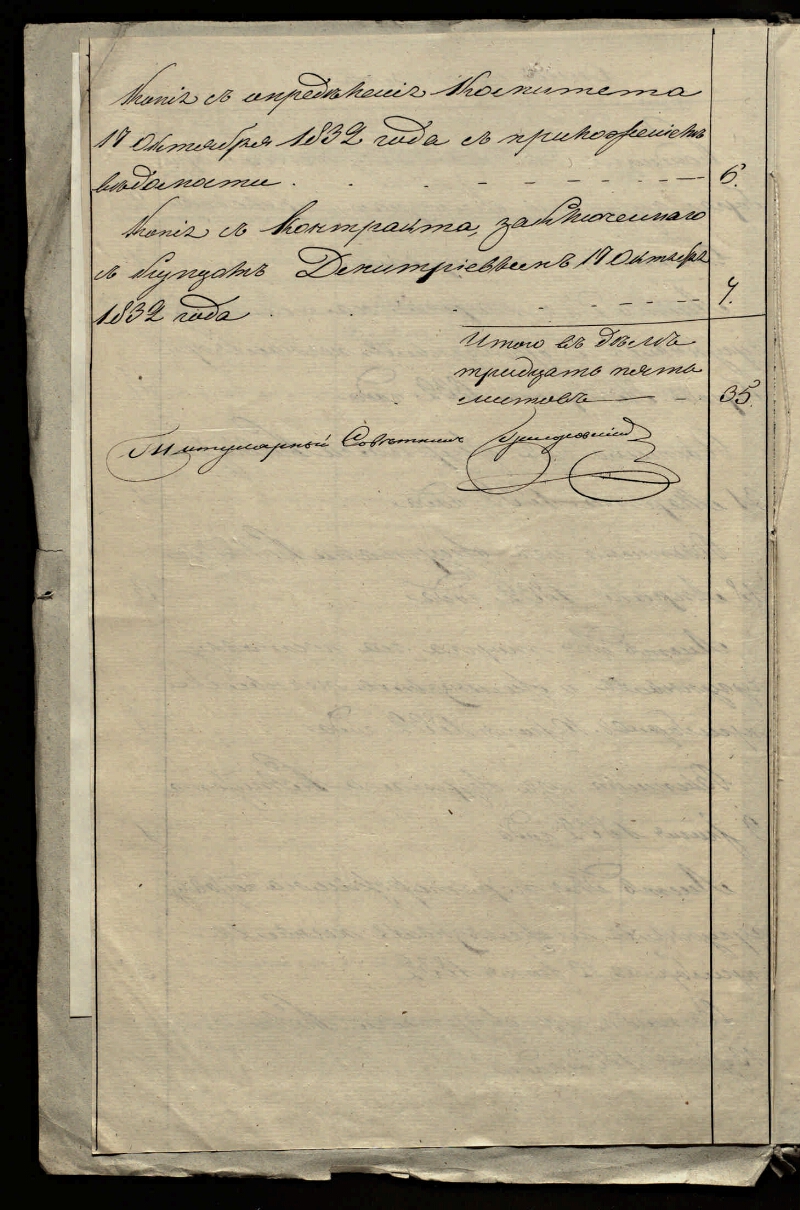 Копія съ опредѣленія Комитета
17 Октября 1832 года съ приложеніемъ
вѣдомости . . . . - - - - - - - 6.
Копія съ Контракта, заключеннаго
съ купцомъ Димитріевымъ 17 Октября
1832 года . . . . . - - - - - 7.
Итого въ дѣлѣ
тридцать пять
листовъ — — — 35.
Титулярный Совѣтникъ